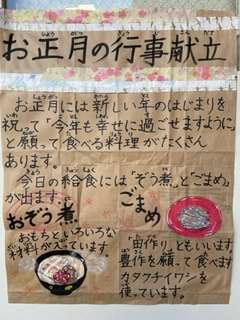 お正月の行事献立
お正月には新しい年のはじまりを
祝って「今年も幸せに過ごせますように」
と願って食べる料理がたくさん
あります。
今日の給食には「ぞう煮」と「ごまめ」
が出ます。
おぞう煮
おもちといろいろな
材料が入っています。
ごまめ
「田作り」ともいいます。
豊作を願って食べます。
カタクチイワシを
使っています。